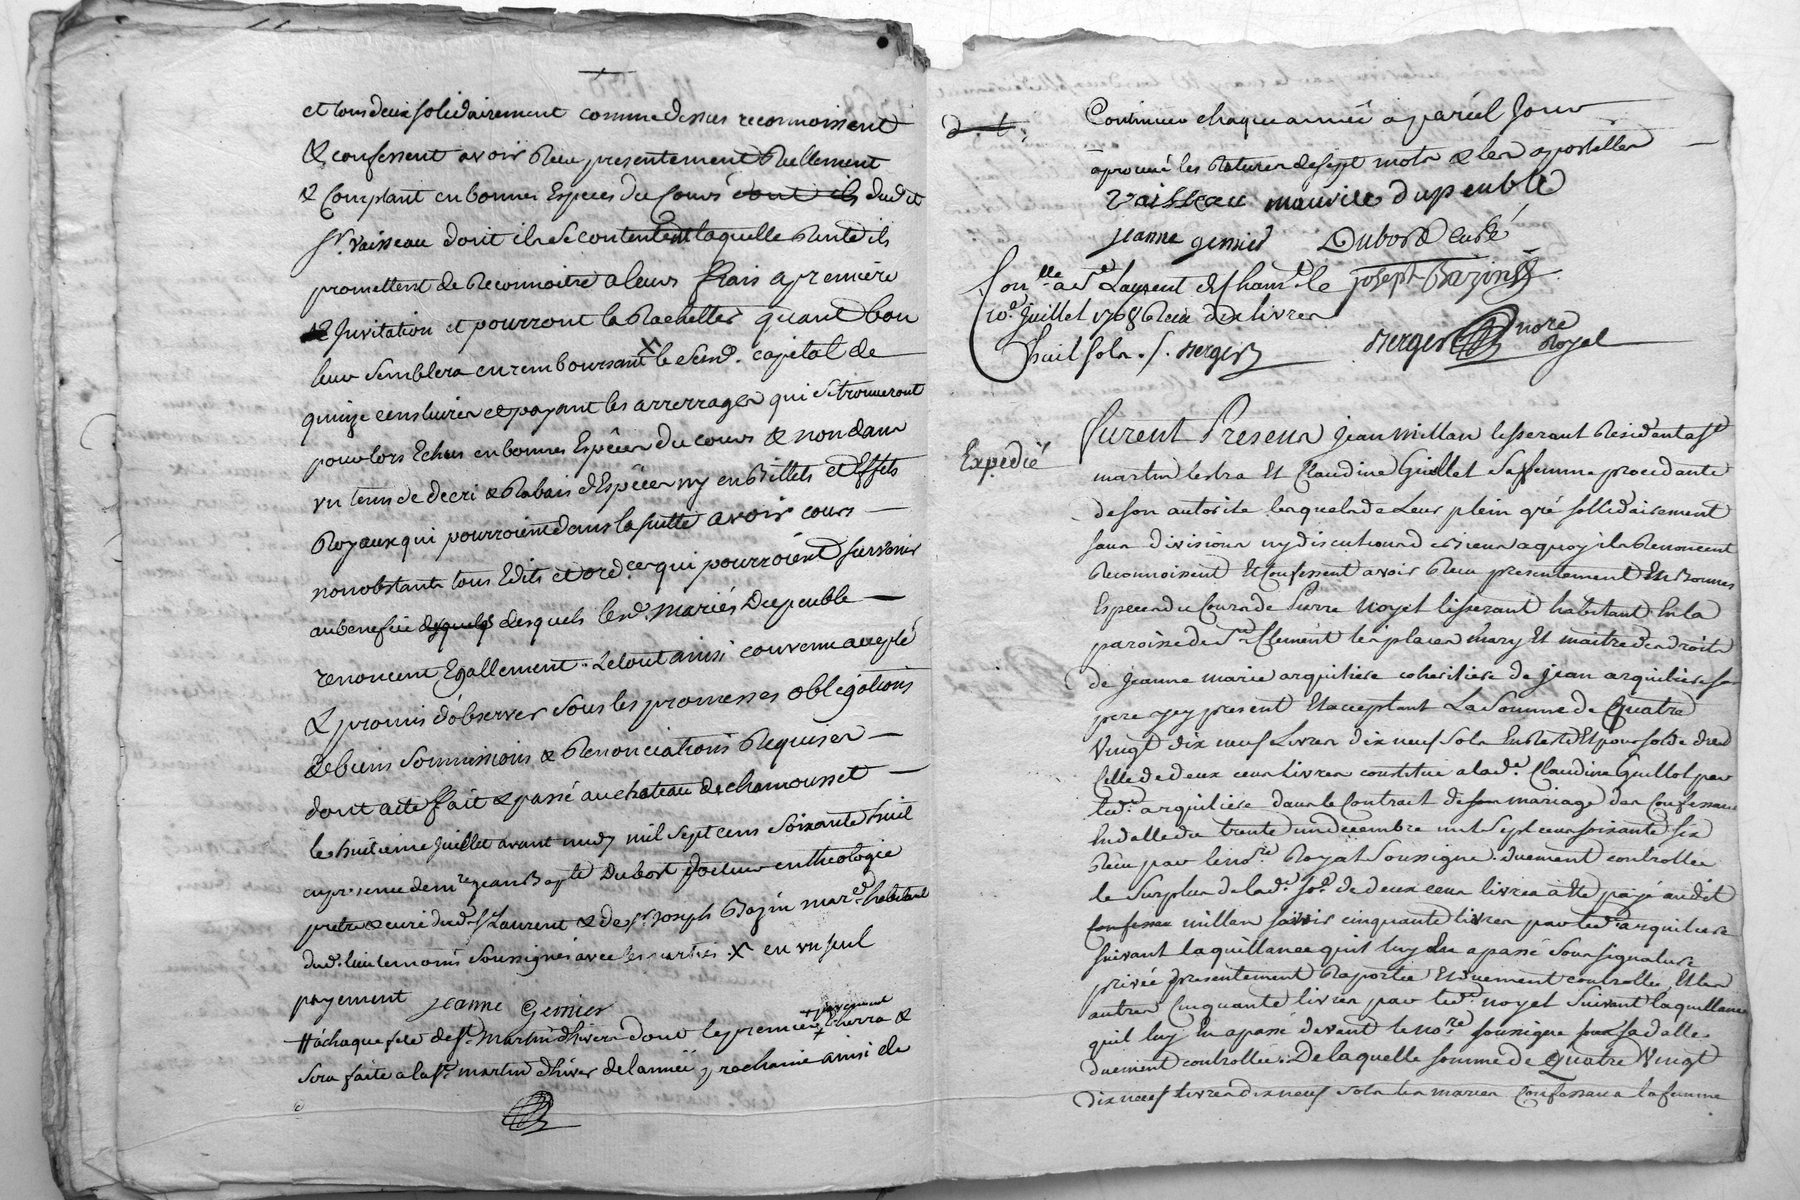 et tous deux solidairement comme dessus reconnoissent
& confessent avoir Reçu presentement Réellement
& Comptant en bonnes Especes du Cours dont ils dudit
Sr. Vaisseau dont ils se contentent laquelle Rente ils
promettent de Reconnoitre a leurs frais a premiere
Invitation et pourront la Rachetter quand bon
leur semblera en remboursant X le susd. capital de
quinze cens livres et payant les arrerrages qui se trouveront
pour lors Echus en bonnes Espèces du cours & non dans
un tems de decri & Rabais d'Espèces ny en Billets et Effets
Royaux qui pourroient dans la suitte avoir cours
nonobstants tous Edits et ord.ces qui pourroient survenir
au benefice desquels desquels lesd. Mariés Dupeuble
renoncent Egallement. Le tout ainsi convenu accepté
& promis d'observer sous les promesses obligations
de biens soumissions & Renonciations Requises
dont acte ffait & passé au chateau de chamousset
le huitieme Juillet avant midy mil sept cens soixante huit
en presence de mre jean Bapte Dubost Docteur en theologie
pretre & curé dud. St Laurent & de Sr. Joseph Bazin mar.d habitant
dud. lieu temoins soussignés avec les parties. X en un seul
payement Jeanne Genier
# a chaque fete de St. Martin d'hivers dont le premier payement
sera faite a la St. martin d'hiver de l'année prochaine ainsi de
Continuer chaque année a pareil Jour
aprouvé les Ratures de sept mots & les apostilles
Vaisseau mauvice dupeuble
Jeanne genier Dubost curé
Con.lle a St Laurent de Cham.t le Joseph Bazin
10e. Juillet 1768 Reçu dix livres
huit sols. /. Berger
Berger nore
Royal
Expedié
Furent Presens Jean Millan tisserant Resident a St
martin lestra Et Claudine Guillot sa femme procedante
de son autorité lesquels de Leur plein gré sollidairement
sans division ny discution d
Reconnoissent Et Confessent avoir Reçu presentement En Bonnes
Especes du Cours de Pierre Noyel tisserant habitant En la
paroisse de St. Clement les places mary Et maitre des droits
de Jeanne marie arquiliere coheritiere de Jean arquiliere son
pere icy present Et acceptant La Somme de Quatre
Vingt dix neuf Livres dix neuf sols En Reste Et pour solde de
Celle de deux cens livres constitué a lad.e Claudine Guillot par
led. arquiliere dans le Contrat de son mariage des Confessans
En datte du trente un decembre mil Sept cens soixante six
Reçu par le nore Royal Soussigné. duement controllée
le Surplus de lad.e So.e de deux cens livres a été payé audit
confessant millan savoir cinquante livres par led. arquiliere
suivant la quittance qu'il luy En a passé sous signature
privée presentement Raportée Et duement controllée, Et les
autres Cinquante livres par led. Noyel suivant la quittance
qu'il luy En a passé devant le nore soussigné
duement controllée. De laquelle somme de Quatre Vingt
dix neuf livres dix neuf sols les mariés Confessans la femme